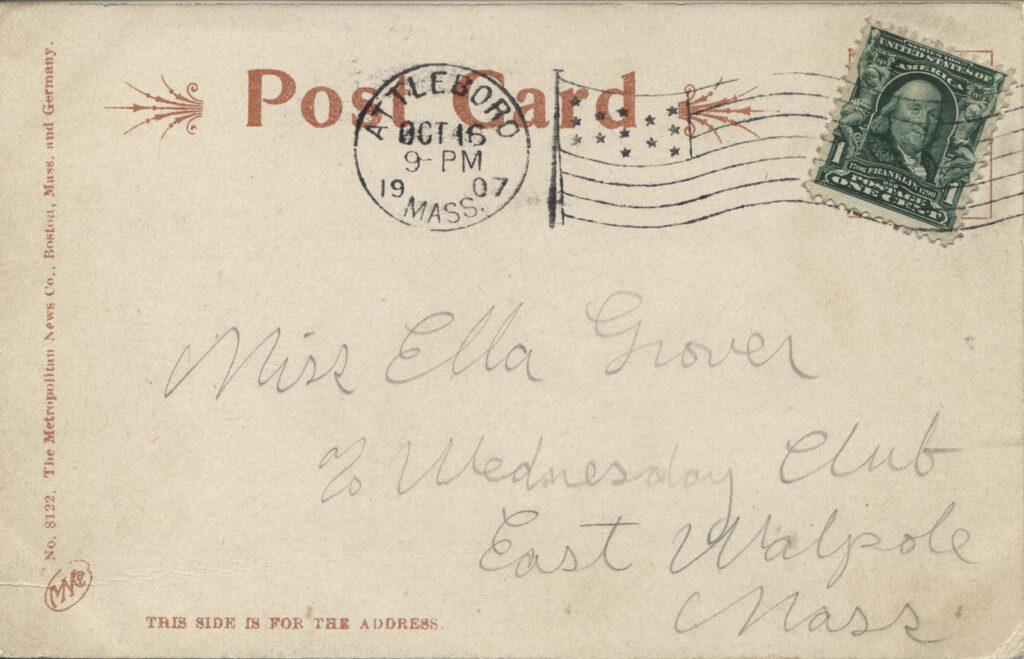 Post Card
ATTLEBORO
OCT 16
9-PM
1907
MASS.
UNITED STATES OF
AMERICA
1706 FRANKLIN 1790
POSTAGE
1 ONE CENT 1
Miss Ella Grover
c/o Wednesday Club
East Walpole
Mass
No. 8122. The Metropolitan News Co., Boston, Mass. and Germany.
MNCo
THIS SIDE IS FOR THE ADDRESS.